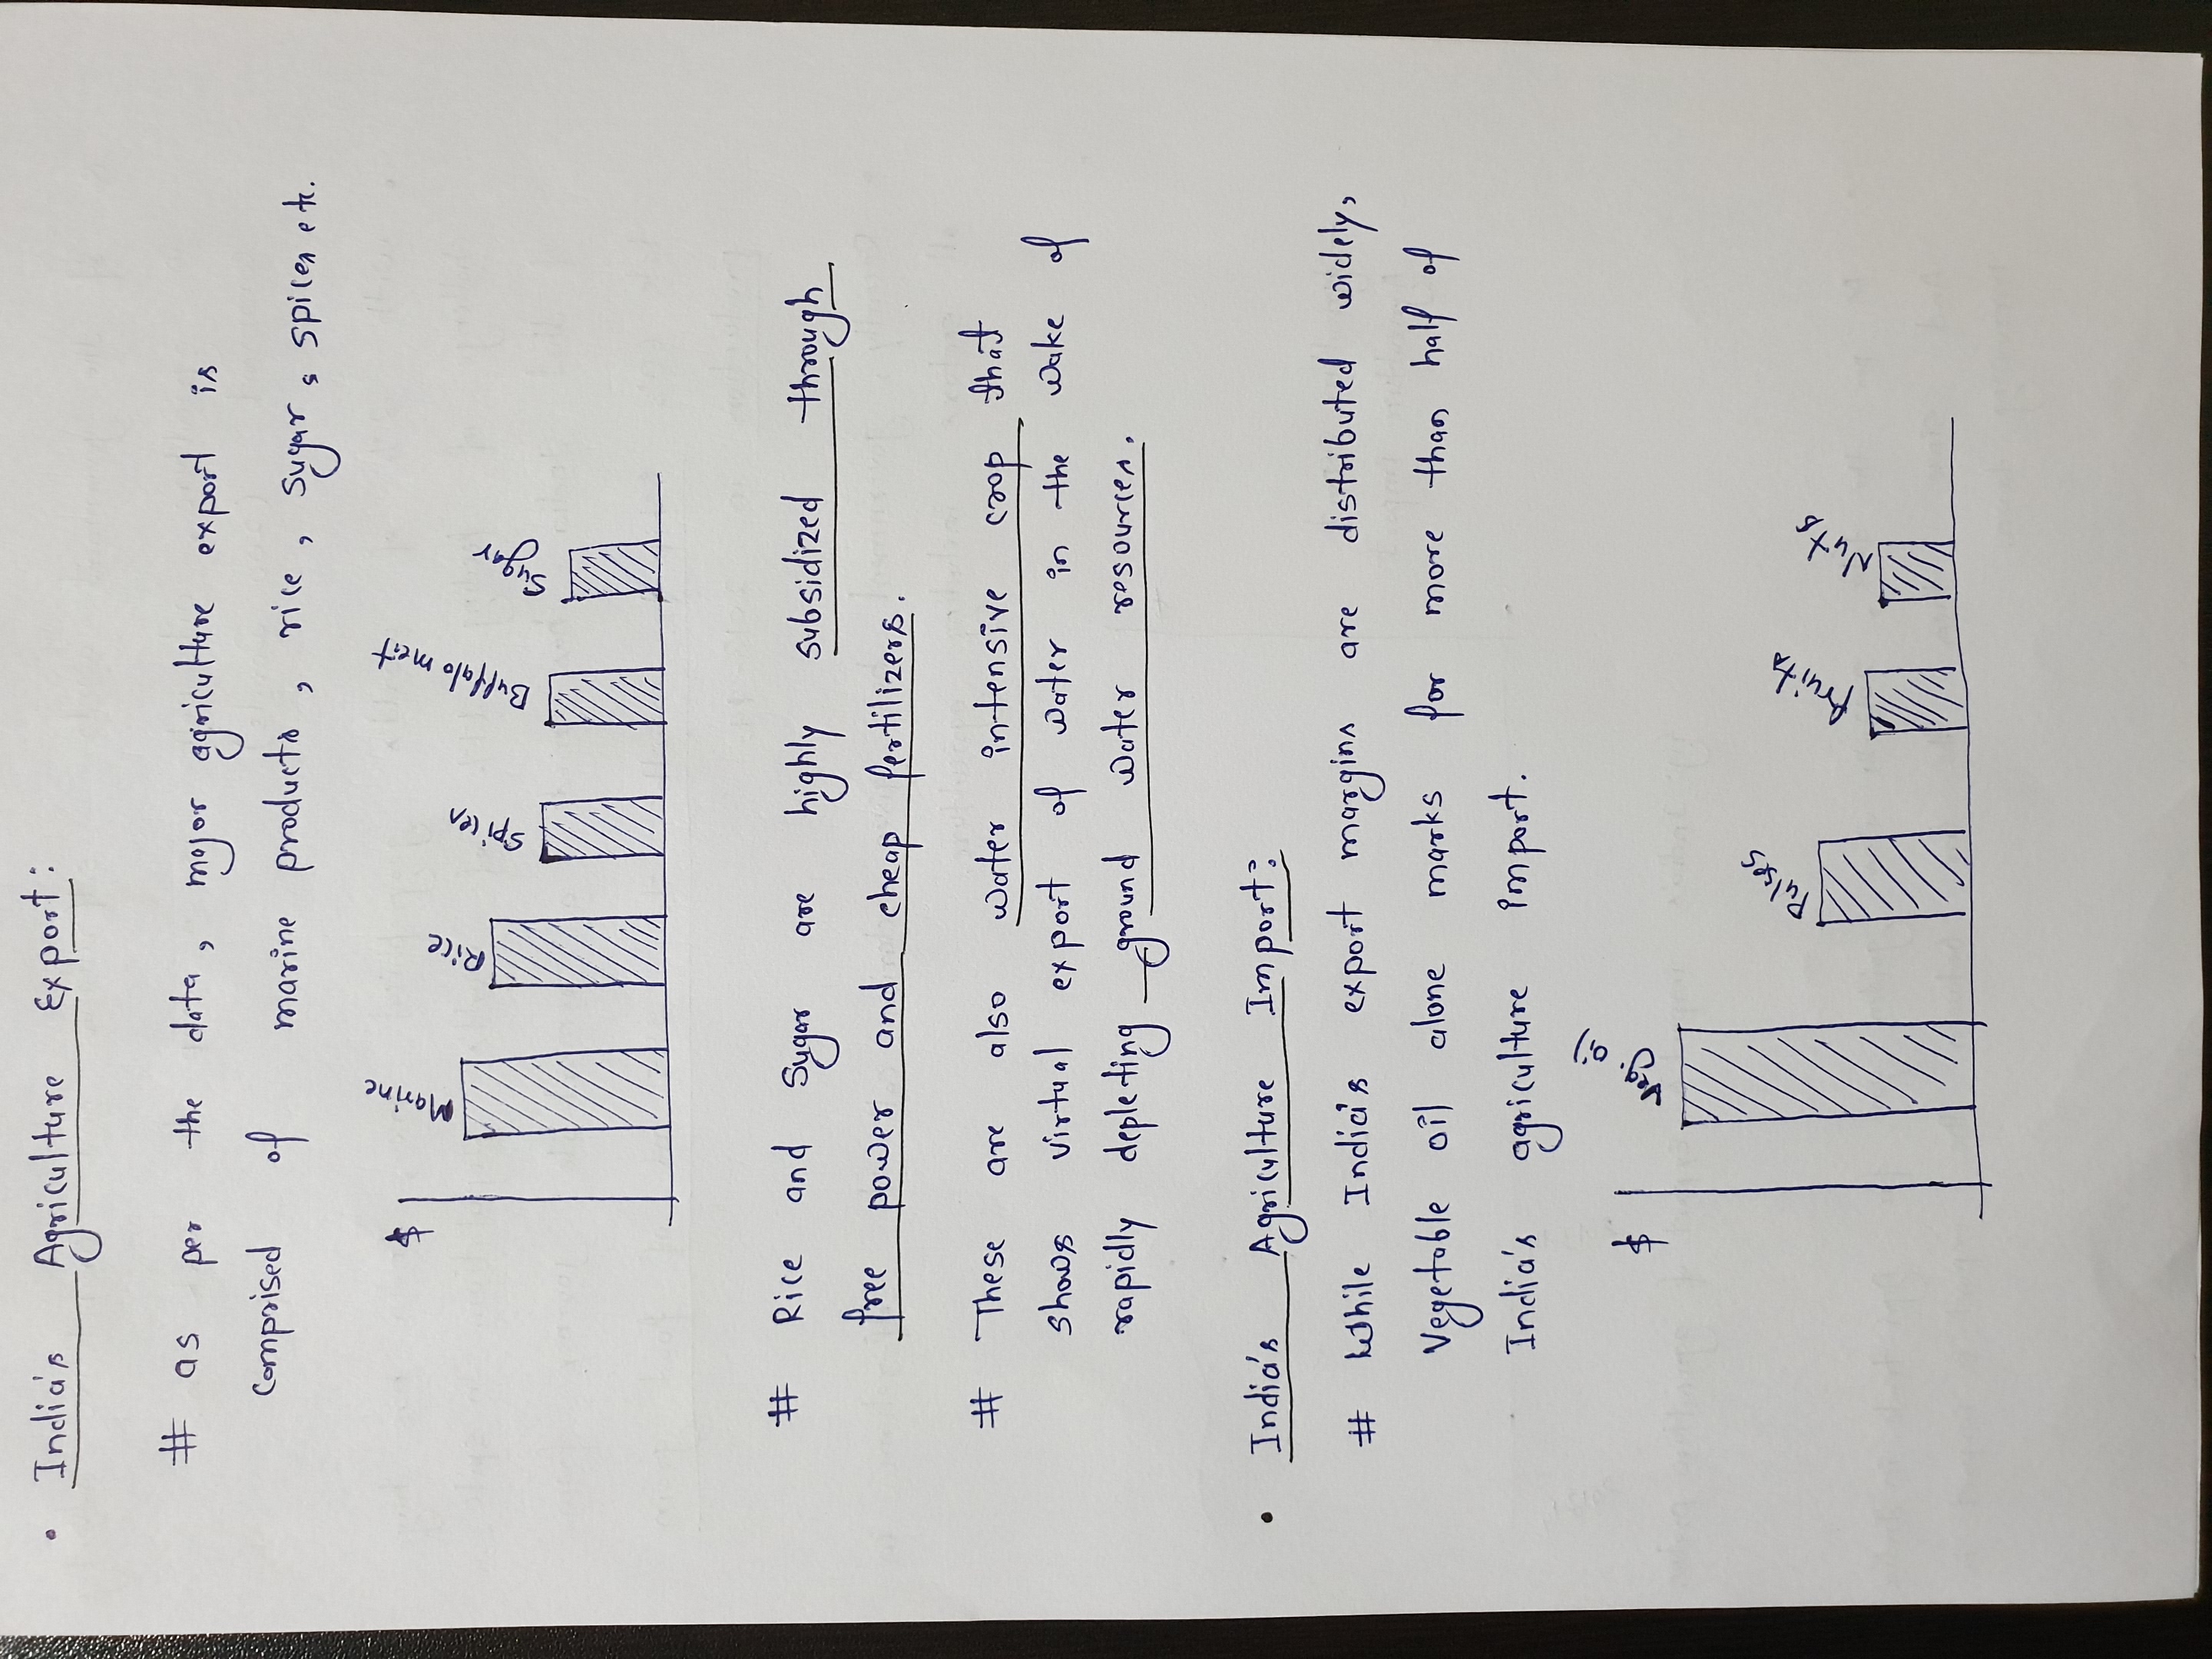 • India's Agriculture Export:
# as per the data, major agriculture export is
comprised of marine products, rice, sugar, spices etc.
$
Marine
Rice
Spices
Buffalo meat
Sugar
# Rice and Sugar are highly subsidized through
free power and cheap fertilizers.
# These are also water intensive crop that
shows virtual export of water in the wake of
rapidly depleting ground water resources.
• India's Agriculture Import:
# While India's export margins are distributed widely,
Vegetable oil alone marks for more than half of
India's agriculture import.
$
Veg.
oil
Pulses
Fruits
Nuts